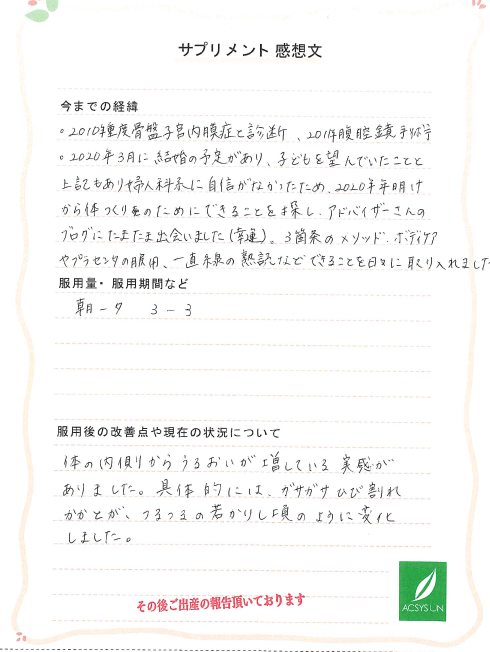 サプリメント 感想文
今までの経緯
・2010年重度骨盤子宮内膜症と診断、2014年腹腔鏡手術
・2020年3月に結婚の予定があり、子どもを望んでいたことと
上記もあり婦人科系に自信がなかったため、2020年年明け
から体づくりのためにできることを探し、アドバイザーさんの
ブログにたまたま出会いました(幸運)。3箇条のメソッド、ボディケア
やプラセンタの服用、一直線の熟読などできることを日々に取り入れました
服用量・服用期間など
朝-夕 3-3
服用後の改善点や現在の状況について
体の内側からうるおいが増している実感が
ありました。具体的には、ガサガサひび割れ
かかとが、つるつるの若かりし頃のように変化
しました。
その後ご出産の報告頂いております
ACSYSUN